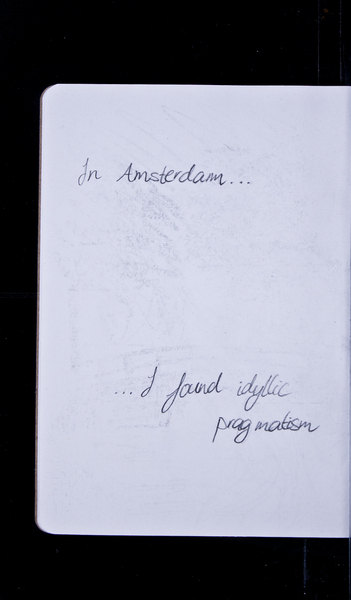 In Amsterdam...
...I found idyllic
pragmatism